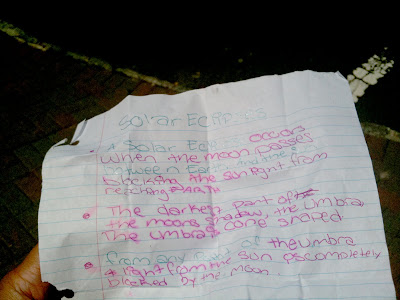 Solar Eclipse
A Solar Eclipse occurs
When the moon passes
between Earth and the
blocking the sun light from
reaching EARTH
The darkest part of
the moons shadow, the umbra,
The umbra cone shaped
From any part of the umbra
a light from the sun is completely
blocked by the moon